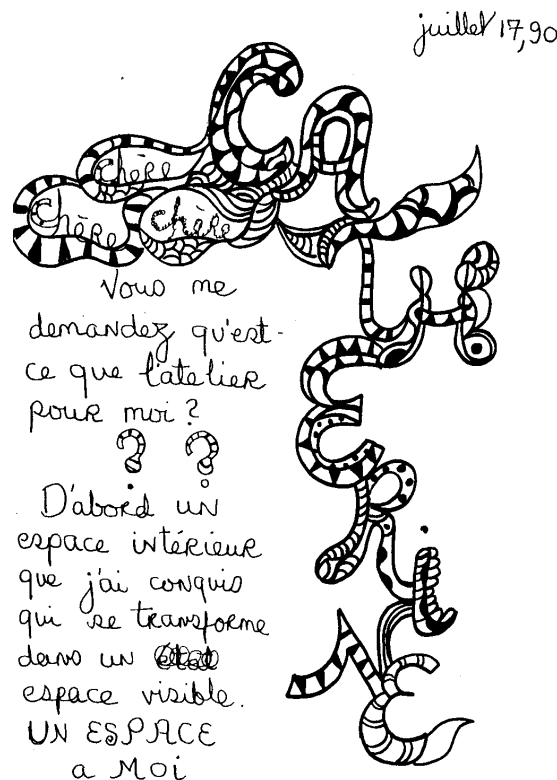 juillet 17,90
Chère
Chère Chère
CatHERiNE
Vous me
demandez qu'est-
ce que l'atelier
pour moi ?
? ?
D'abord un
espace intérieur
que j'ai conquis
qui se transforme
dans un
espace visible.
UN ESPACE
a MOi